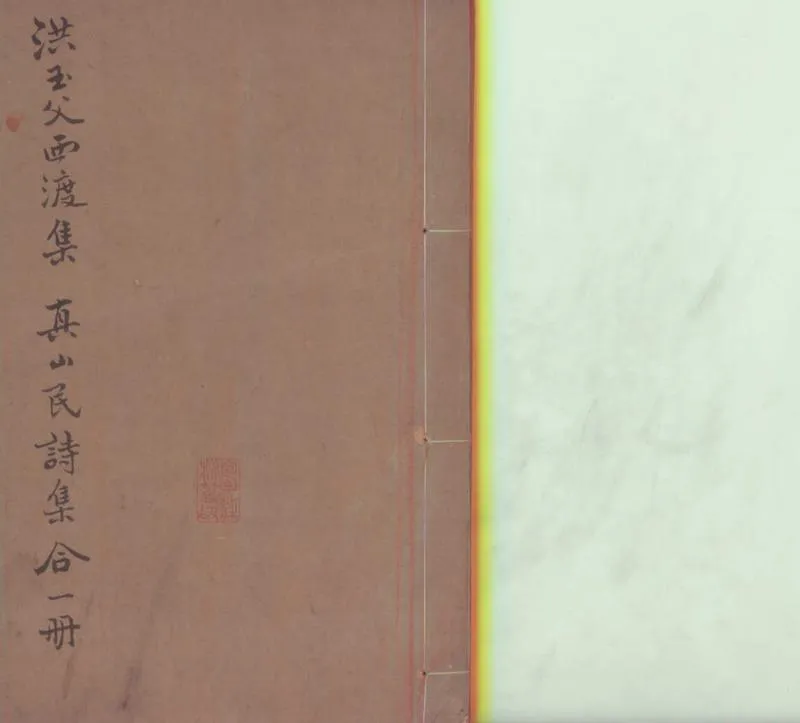 洪玉父西渡集 真山民詩集 合一册